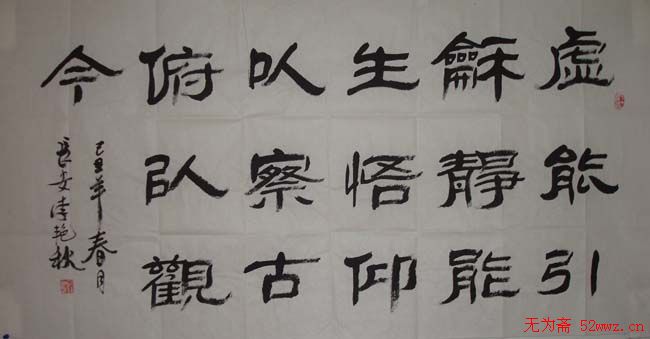 虚能引
龢靜能
生悟仰
以察古
俯以觀
今
己丑年春月
長安李艳秋
无为斋 52wwz.cn